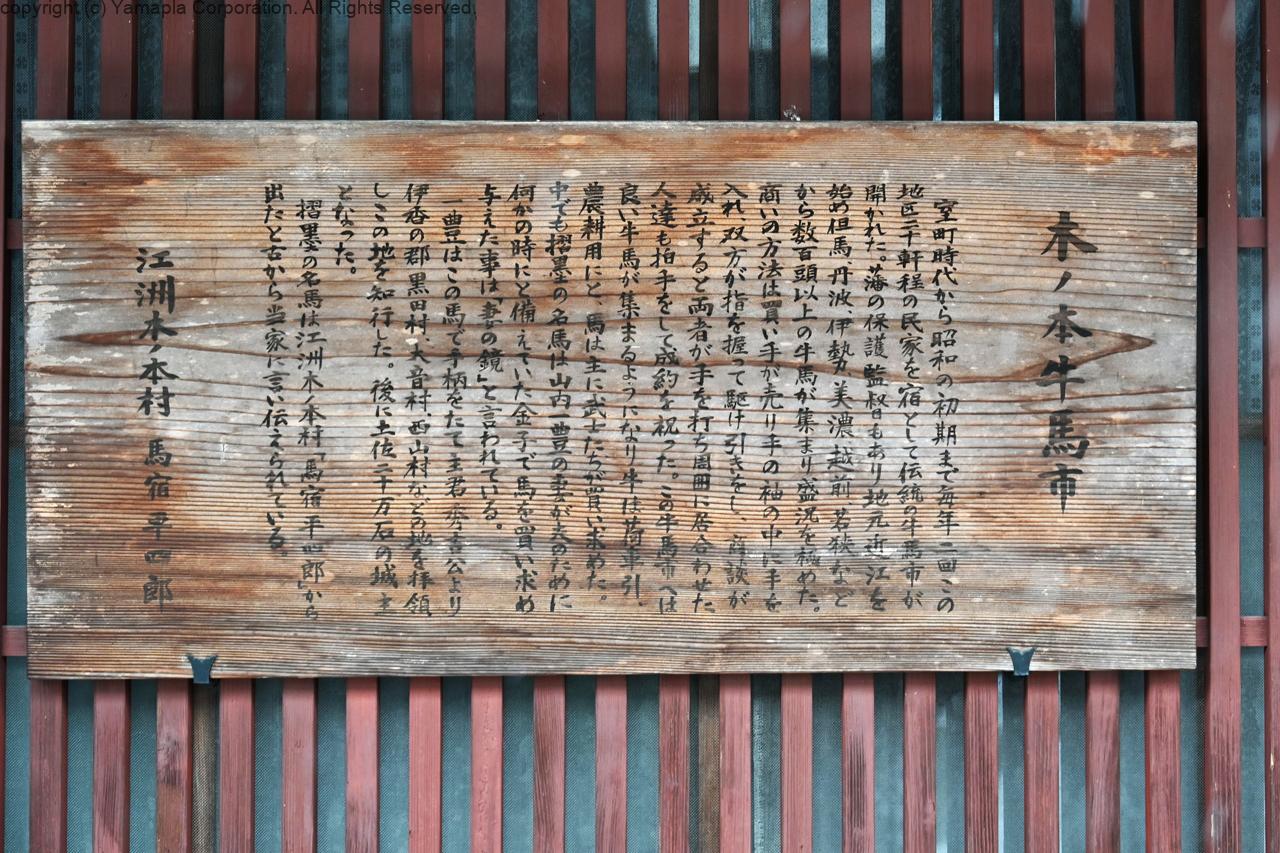 copyright (c) Yamapla Corporation. All Rights Reserved.
木ノ本牛馬市
室町時代から昭和の初期まで毎年二回この
地区二十軒程の民家を宿として伝統の牛馬市が
開かれた。藩の保護監督もあり地元近江を
始め但馬、丹波、伊勢、美濃、越前、若狭など
から数百頭以上の牛馬が集まり盛況を極めた。
商いの方法は買い手が売り手の袖の中に手を
入れ、双方が指を握って駆け引きをし、商談が
成立すると両者が手を打ち周囲に居合わせた
人達も拍手をして成約を祝った。この牛馬市へは
良い牛馬が集まるようになり牛は荷車引、
農耕用にと、馬は主に武士たちが買い求めた。
中でも摺墨の名馬は山内一豊の妻が夫のために
何かの時にと備えていた金子で馬を買い求め
与えた事は「妻の鏡」と言われている。
一豊はこの馬で手柄をたて主君秀吉公より
伊香の郡黒田村、大音村、西山村などの地を拝領
しこの地を知行した。後に土佐二十万石の城主
となった。
摺墨の名馬は江洲木ノ本村「馬宿平四郎」から
出たと古から当家に言い伝えられている。
江洲木ノ本村 馬宿 平四郎